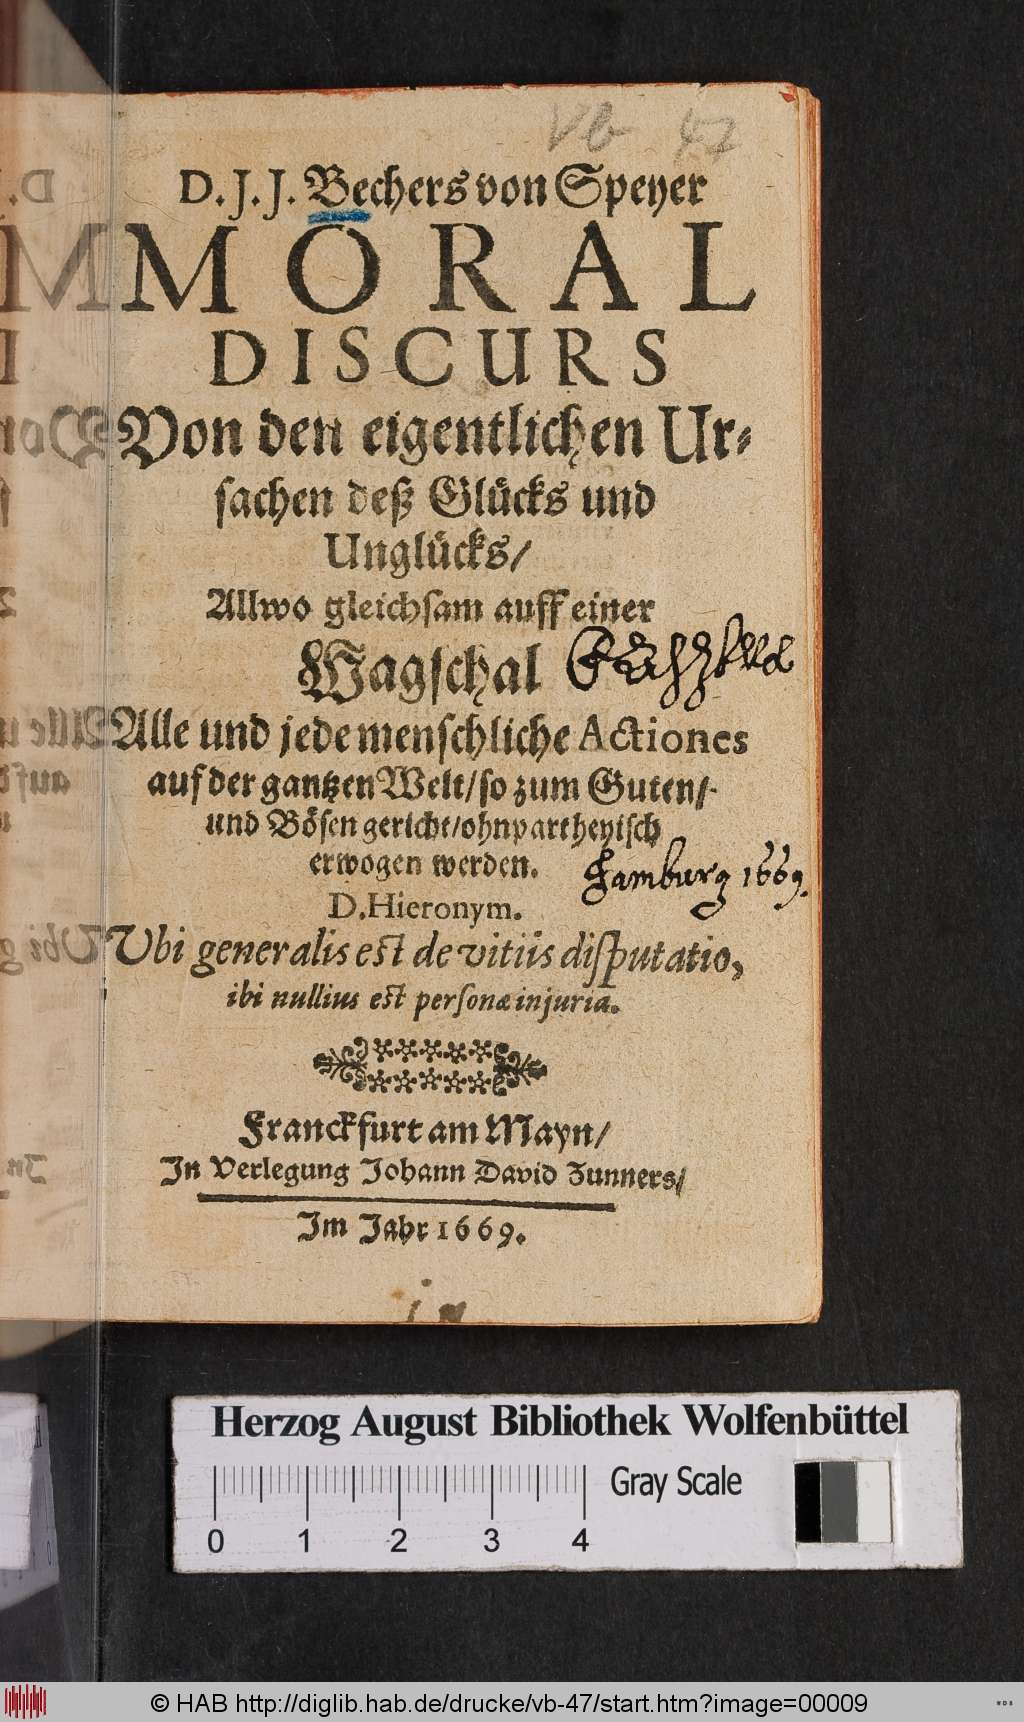 Vb 47
D. J. J. Bechers von Speyer
MORAL
DISCURS
Von den eigentlichen Ur⸗
sachen deß Glücks und
Unglücks/
Allwo gleichsam auff einer
Wagschal
Alle und jede menschliche Actiones
auf der gantzen Welt/ so zum Guten/
und Bösen gericht/ ohnpartheyisch
erwogen werden.
Hamburg 1669.
D. Hieronym.
Ubi generalis est de vitiis disputatio,
ibi nullius est personæ injuria.
Franckfurt am Mayn/
In Verlegung Johann David Zunners/
Im Jahr 1669.
Herzog August Bibliothek Wolfenbüttel
Gray Scale
0 1 2 3 4
© HAB http://diglib.hab.de/drucke/vb-47/start.htm?image=00009